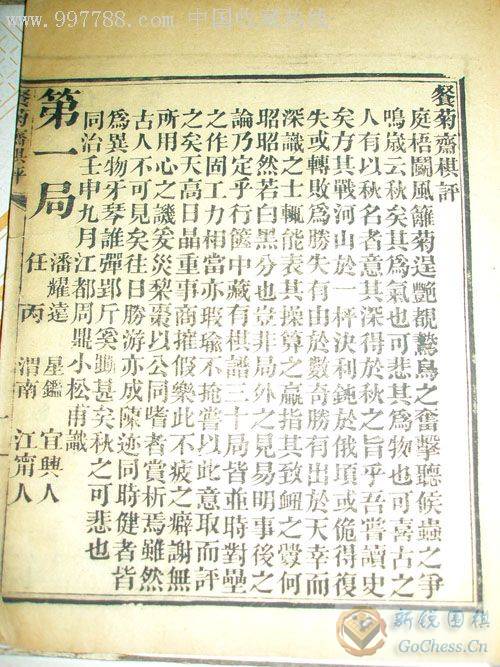 www.997788.com 中国收藏热线
餐菊齋棋評
庭梧鬭風籬菊逞艷覩鷙鳥之奮擊聽候蟲之爭
鳴嵗云秋矣其爲氣也可悲其爲物也可喜古之
人有以秋名者意其深得於秋之旨乎吾嘗讀史
矣方其戰河山於一枰決利鈍於俄頃或佹得復
失或轉敗爲勝失有由於數奇勝有出於天幸而
深識之士輒能表其操算之贏指其致衄之釁何
昭昭然若白黑分也豈非局外之見易明事後之
論乃定乎行篋中藏有棋譜三十局皆並時對壘
之作固工力相當亦瑕瑜不掩嘗以此意取而評
之矣天高日晶重事商搉假樂此不疲之癖謝無
所用心之譏爰災棃棗以公同嗜者賞析焉雖然
古人不可見矣往日勝游亦成陳迹同時健者皆
爲異物牙琴誰彈郢斤奚斵甚矣秋之可悲也
同治壬申九月江都周鼎小松甫識
第一局
潘耀遠 星鑑 宜興人
任丙 渭南 江甯人
餐菊齋棋評
新锐围棋
GoChess.Cn